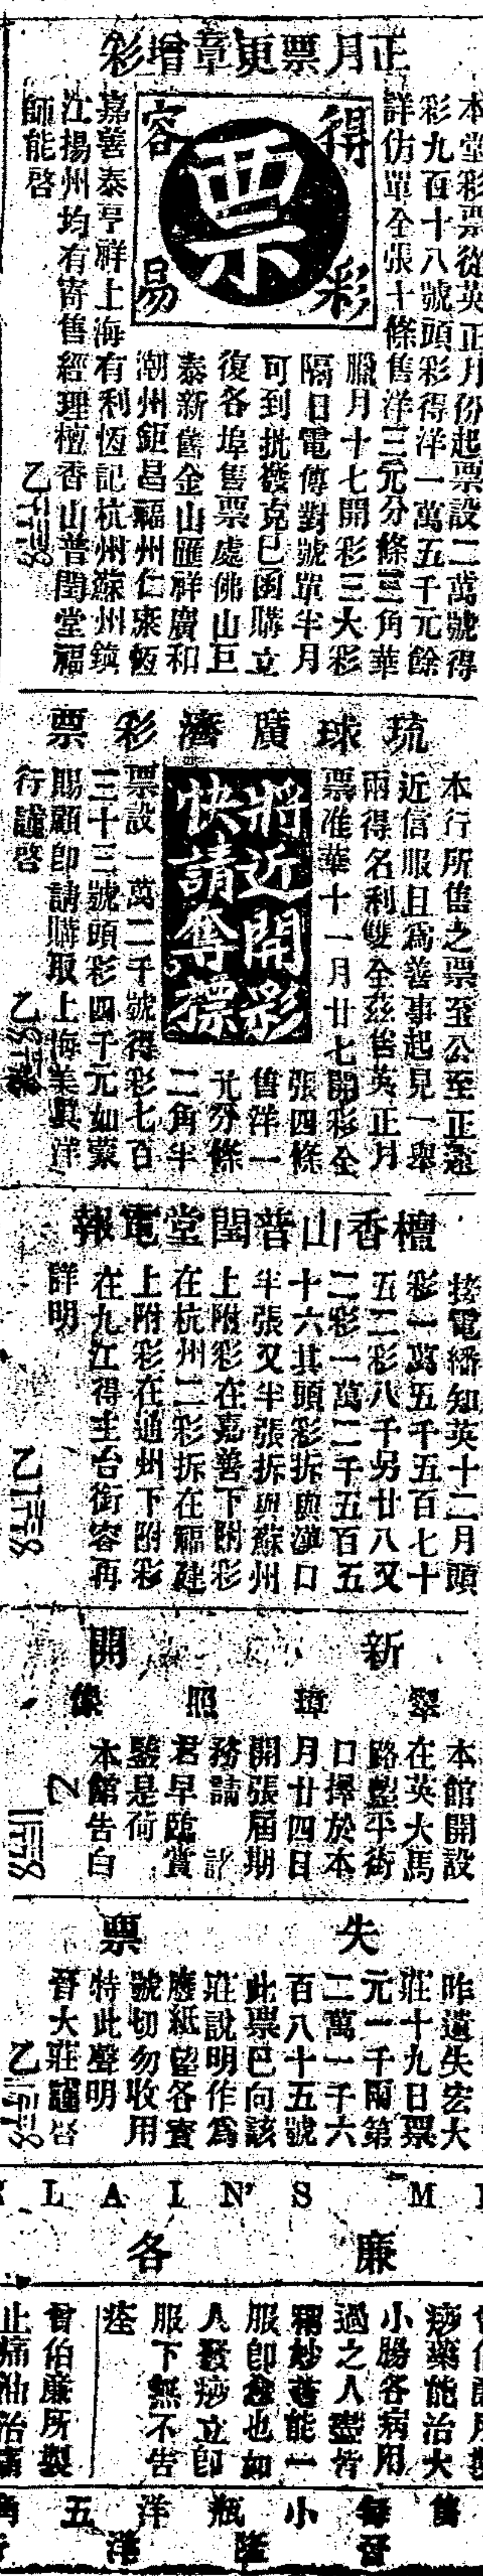 正月票更章增彩
得彩
容易
票
本堂彩票從英正月份起票設二萬號得
彩九百十八號頭彩得洋一萬五千元餘
詳仿單全張十條售洋三元分條三角華
臘月十七開彩三大彩
隔日電傳對號單半月
可到批發克已函購立
復各埠售票處佛山巨
泰新舊金山匯祥廣和
潮州鉅昌福州仁來恆
嘉善泰亨祥上海有利恆記杭州蘇州鎮
江揚州均有寄售經理檀香山普閏堂福
師能啓
琉球廣濟彩票
將近開彩
快請奪標
本行所售之票至公至正遠
近信服且爲善事起見一舉
兩得名利雙全茲售英正月
票准華十一月廿七開彩全
張四條
售洋一
元分條
二角半
票設一萬二千號得彩七百
三十三號頭彩四千元如蒙
賜顧即請購取上海美興洋
行謹啓
檀香山普閏堂電報
接電繙知英十二月頭
彩一萬五千五百七十
五二彩八千另廿八又
二彩一萬二千五百五
十六其頭彩拆與漢口
半張又半張拆與蘇州
上附彩在嘉善下附彩
在杭州二彩拆在福建
上附彩在通州下附彩
在九江得主台銜容再
詳明
新開
翠璋照像
本館開設
在英大馬
路望平街
口擇於本
月廿四日
開張屆期
務請 諸
君早臨賞
鑒是荷
本館告白
失票
昨遺失宏大
莊十九日票
元一千兩第
二萬一千六
百八十五號
此票已向該
莊說明作爲
廢紙望各寳
號切勿收用
特此聲明
晉大莊謹啓
LAIN'S M
廉各
痧藥能治大
小腸各病用
過之人盡皆
稱妙若能一
服即愈也如
人發痧立即
服下無不告
痊
曾伯廉所製
止痛油治痛
售每小瓶洋五角